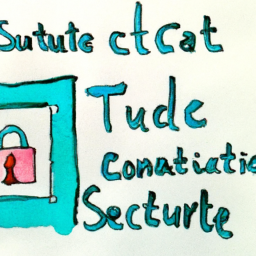 Sutute ctcat
Tucle
Conatiatie
Secturte